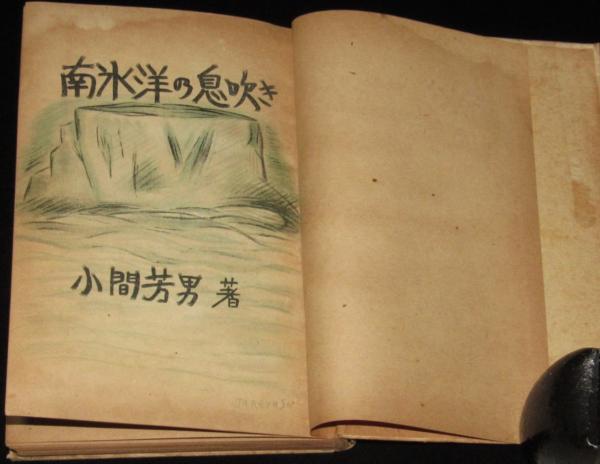 南氷洋の息吹き
小間芳男 著